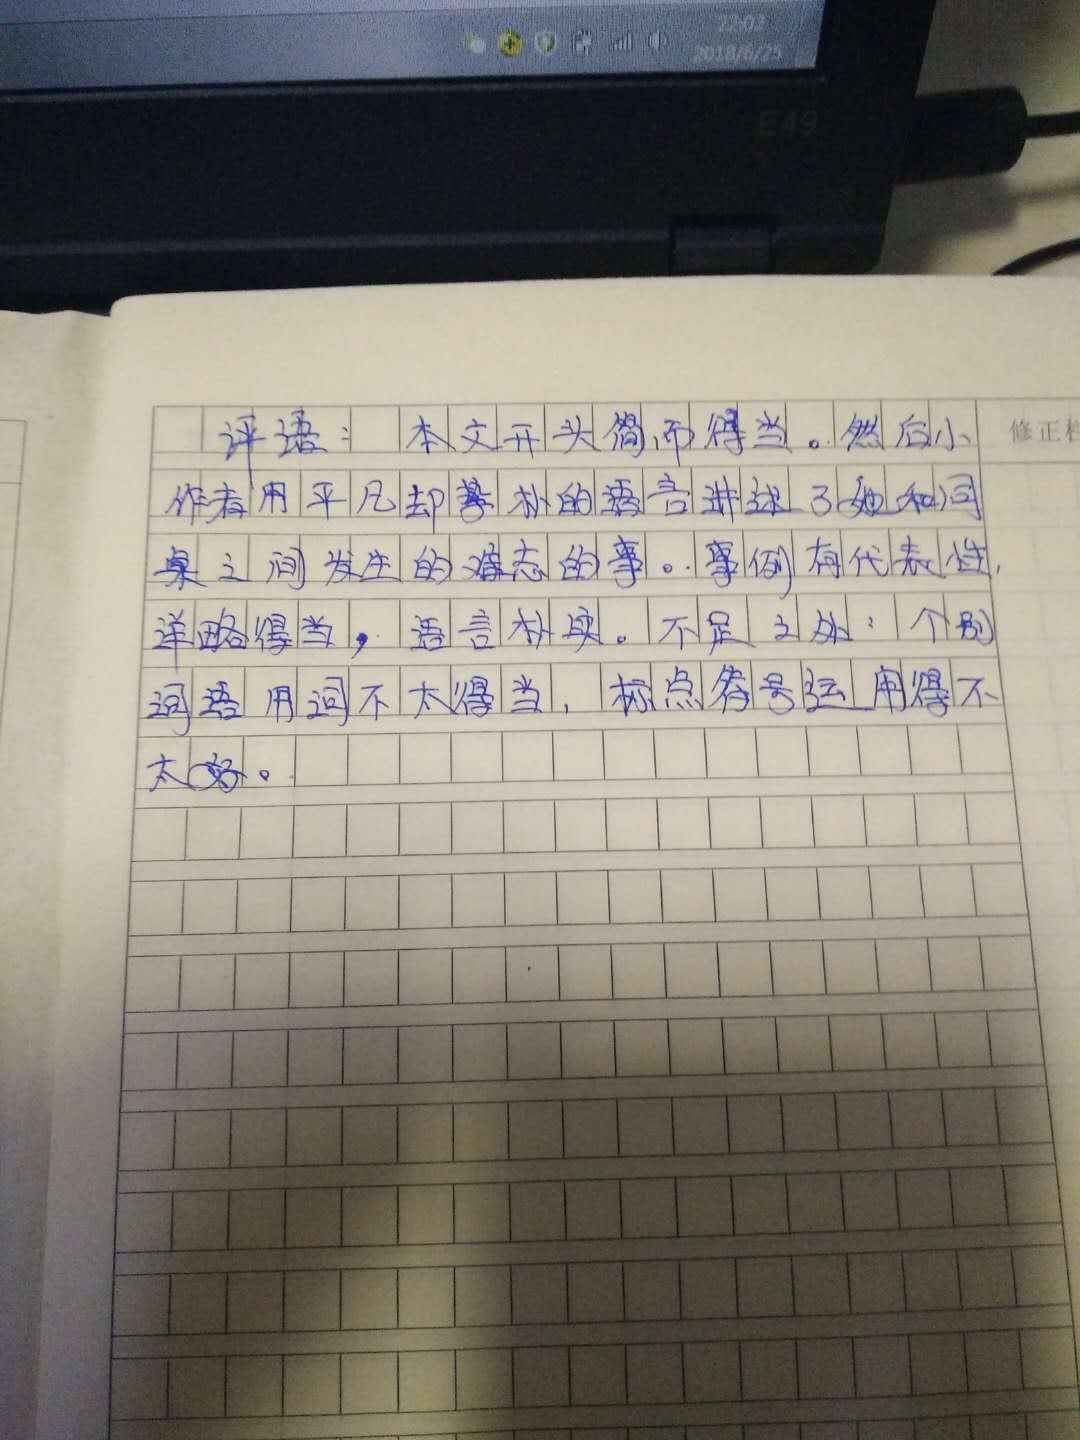 22:02
2018/6/25
E49
评语：本文开头简而得当。然后小
修正栏
作者用平凡却朴的语言讲述了她和同
桌之间发生的难忘的事。事例有代表性，
详略得当，语言朴实。不足之处：个别
词语用词不太得当，标点符号运用得不
太好。